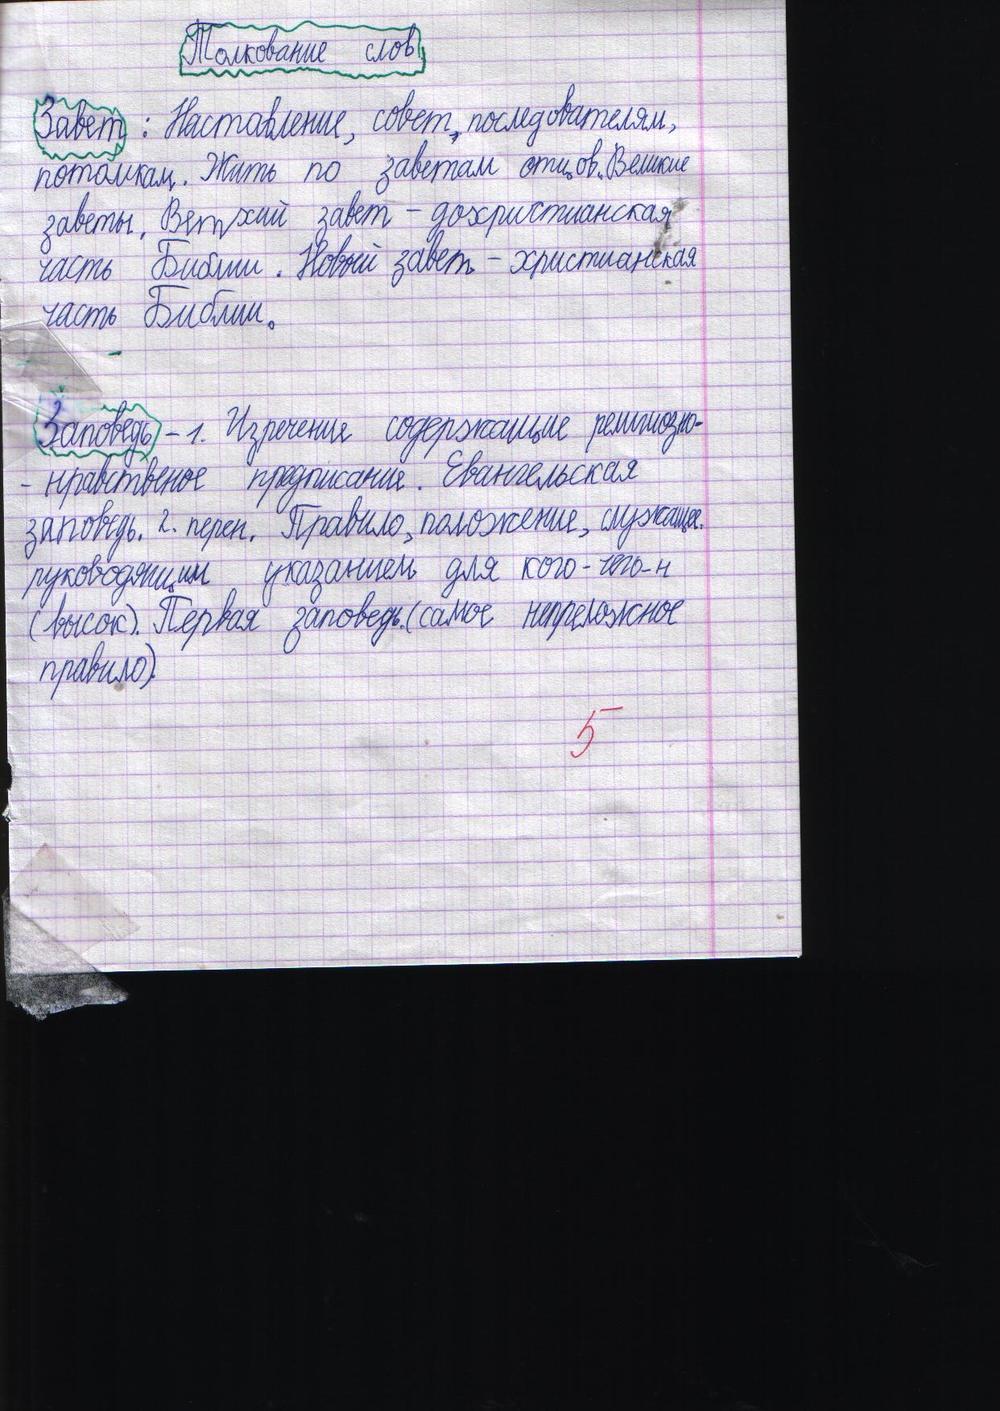 Толкование слов
Завет : Наставление, совет, последователям,
потомкам. Жить по заветам отцов. Великие
заветы. Ветхий завет - дохристианская
часть Библии. Новый завет - христианская
часть Библии.
Заповедь - 1. Изречение содержащие религиозно-
- нравственое предписание. Евангельская
заповедь. 2. перен. Правило, положение, служаще.
руководящим указанием для кого-чего-н
(высок). Первая заповедь. (самое непреложное
правило).
5